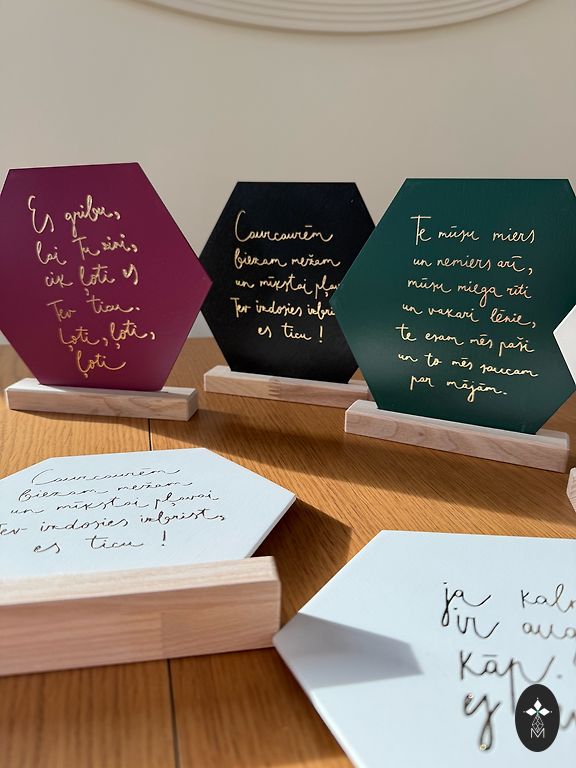 Es gribu,
lai Tu zini,
cik ļoti es
Tev ticu.
Ļoti, ļoti,
ļoti
Caurcaurēm
biezam mežam
un mīkstai pļavai
Tev izdosies izbrist,
es ticu!
Te mūsu miers
un nemiers arī,
mūsu miega rīti
un vakari lēnie,
te esam mēs paši
un to mēs saucam
par mājām.
Caurcaurēm
biezam mežam
un mīkstai pļavai
Tev izdosies izbrist,
es ticu!
ja
ir
kāp.
ej
M